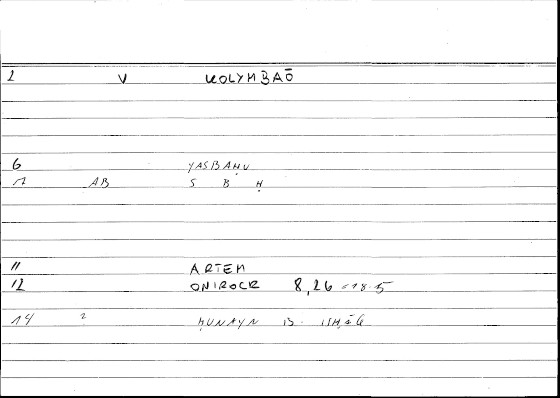 2 V KOLYMBAŌ
6 YASBAḤU
7 AB S B Ḥ
11 ARTEM
12 ONIROCR 8,26 =18.5
14 ? ḤUNAYN B.